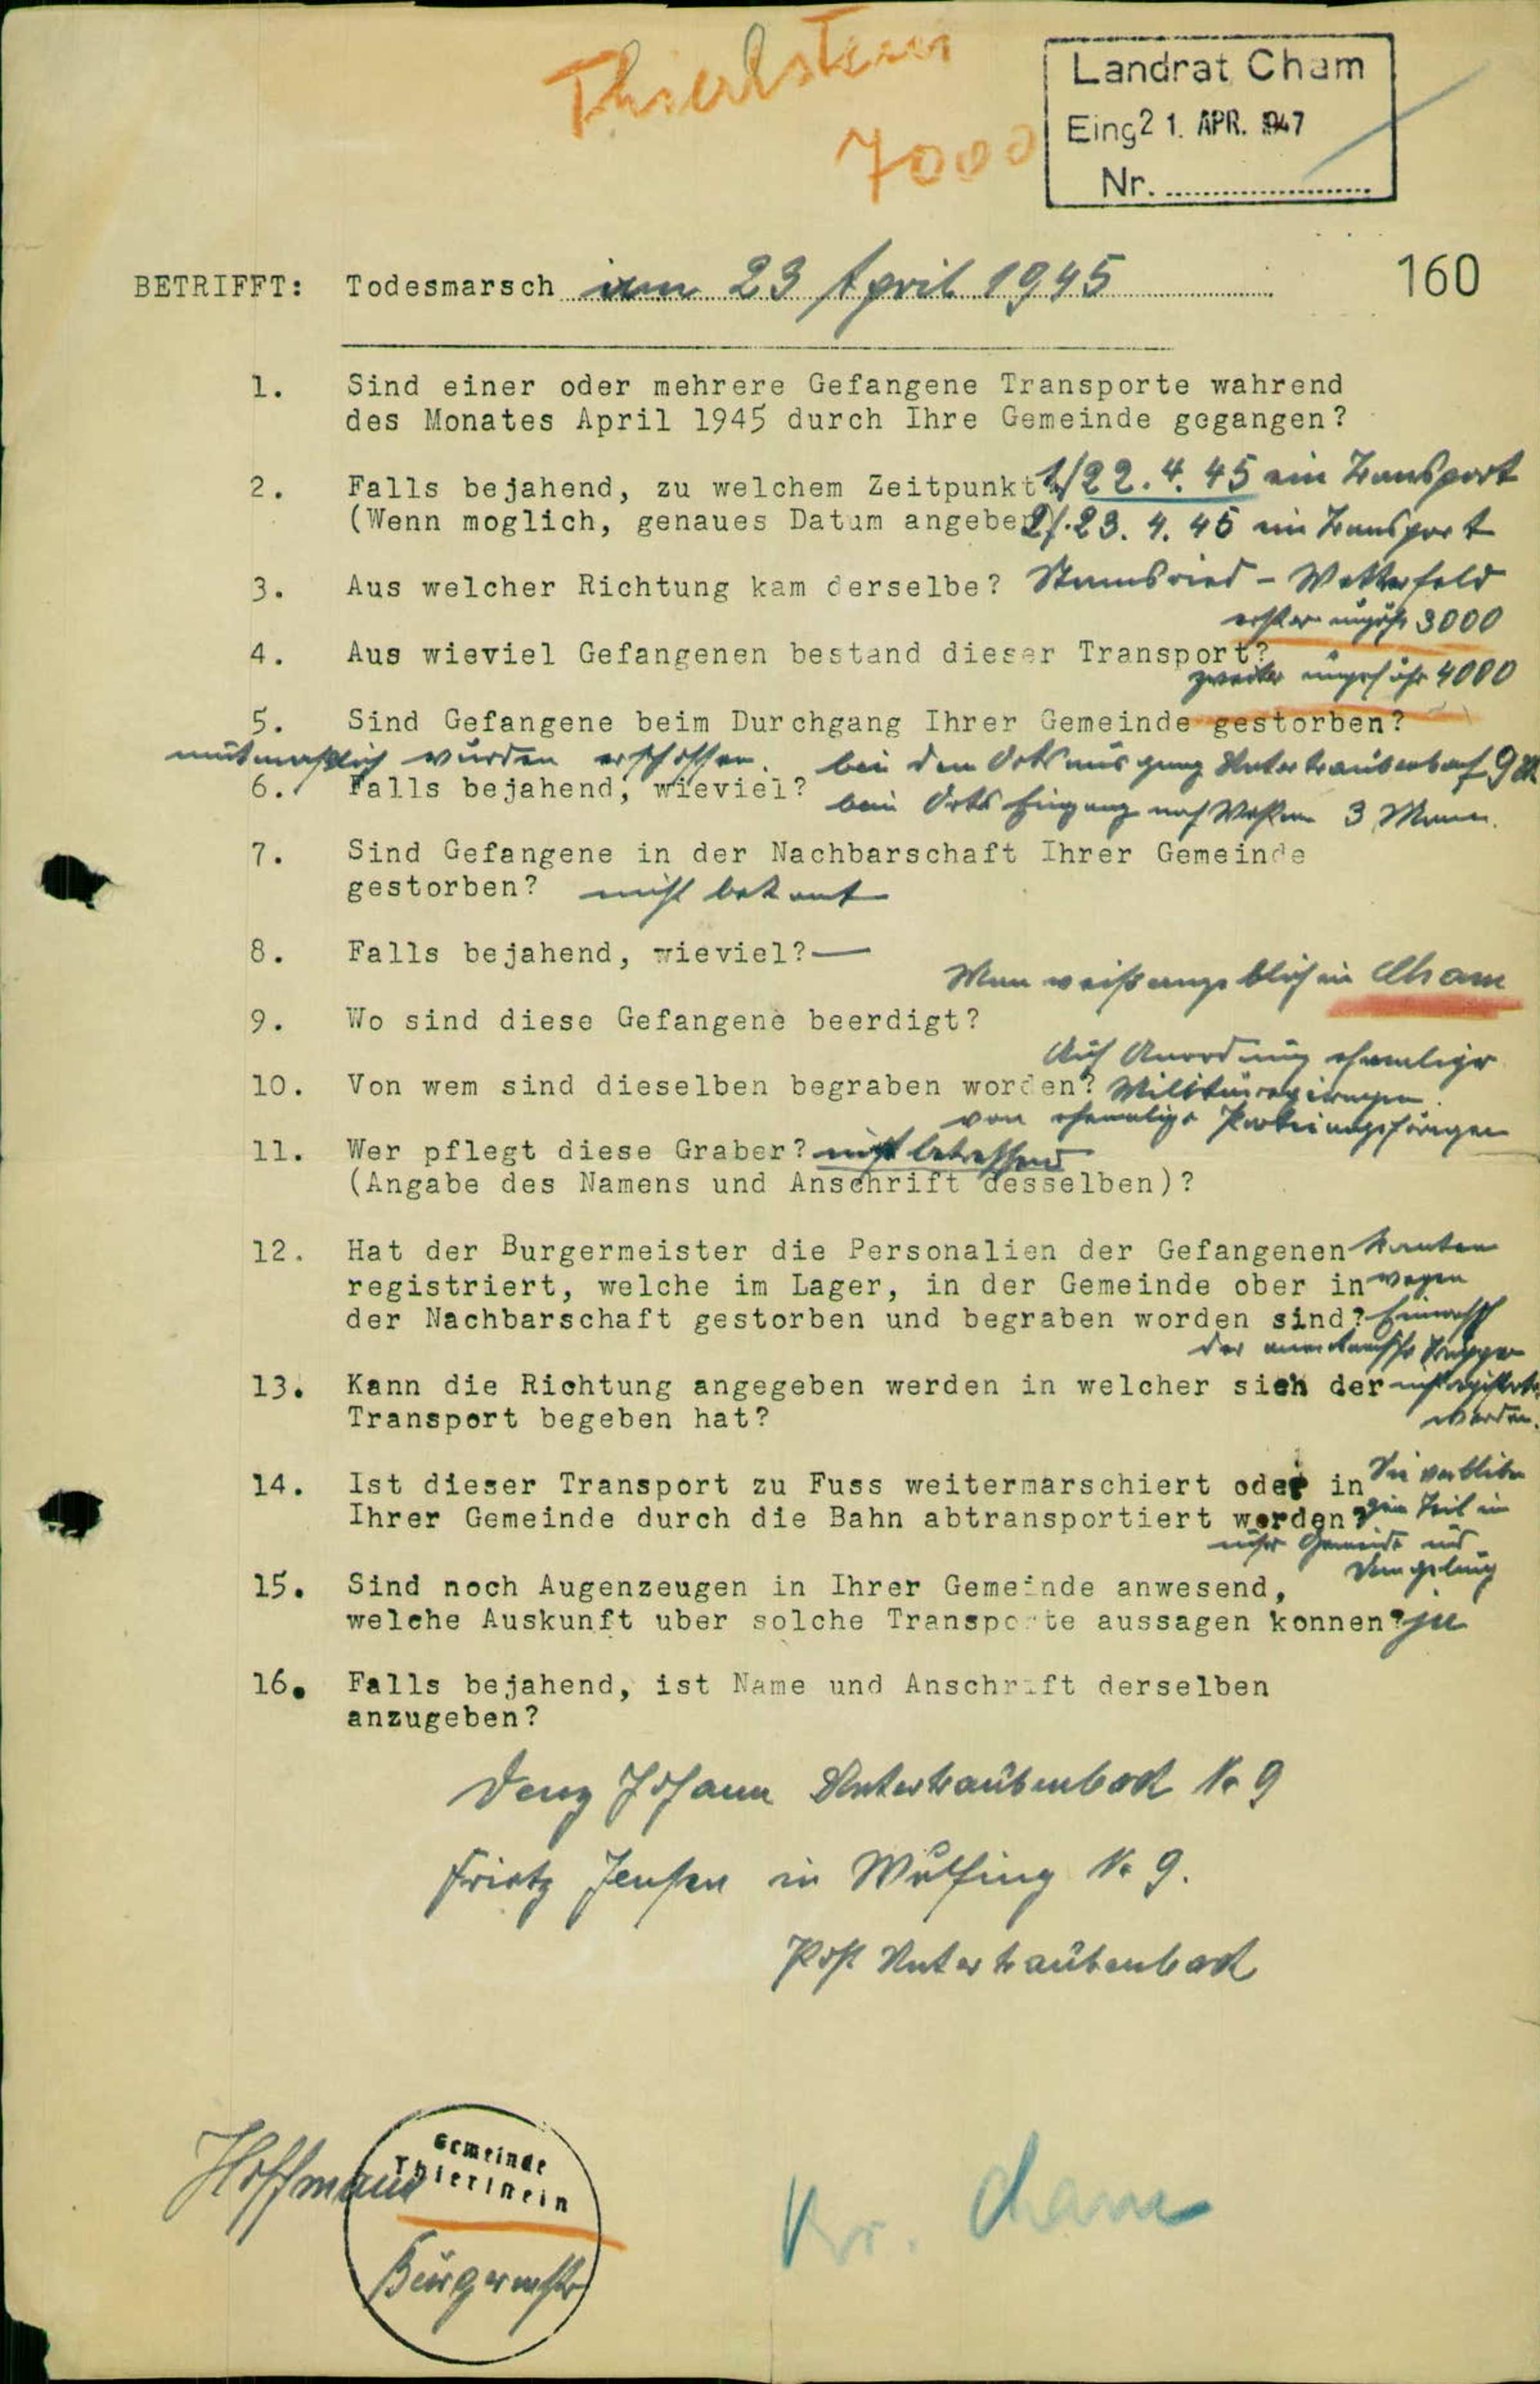 Thierlstein
7000
Landrat Cham
Eing 21. APR. 1947
Nr. ........................
160
BETRIFFT: Todesmarsch am 23 April 1945
1. Sind einer oder mehrere Gefangene Transporte wahrend
des Monates April 1945 durch Ihre Gemeinde gegangen?
2. Falls bejahend, zu welchem Zeitpunkt 1/22. 4. 45 ein Transport
(Wenn moglich, genaues Datum angeben 2/. 23. 4. 45 ein Transport
3. Aus welcher Richtung kam derselbe? Stamsried - Wetterfeld
erster 3000
4. Aus wieviel Gefangenen bestand dieser Transport?
zweiter ungefähr 4000
5. Sind Gefangene beim Durchgang Ihrer Gemeinde gestorben?
mutmaßlich wurden erschossen. bei den Ortsausgang Untertraubenbach 9 M
6. Falls bejahend, wieviel? beim Orts Eingang nach Westen 3 Mann.
7. Sind Gefangene in der Nachbarschaft Ihrer Gemeinde
gestorben? nicht bekant
8. Falls bejahend, wieviel? —
Man weiß angeblich in Cham
9. Wo sind diese Gefangene beerdigt?
Auf Anordnung ehemaliger
10. Von wem sind dieselben begraben worden? Militärregierungen
von ehemalige Parteiangehörigen
11. Wer pflegt diese Graber? nicht betreffend
(Angabe des Namens und Anschrift desselben)?
12. Hat der Burgermeister die Personalien der Gefangenen konnten
registriert, welche im Lager, in der Gemeinde ober in wegen
der Nachbarschaft gestorben und begraben worden sind? Einmarsch
der amerikanische Truppen
13. Kann die Richtung angegeben werden in welcher sich der nicht registriert
Transport begeben hat? werden.
14. Ist dieser Transport zu Fuss weitermarschiert oder in Sie verblieben
Ihrer Gemeinde durch die Bahn abtransportiert worden? zum Teil in
Gemeinde und
Umgebung
15. Sind noch Augenzeugen in Ihrer Gemeinde anwesend,
welche Auskunft uber solche Transporte aussagen konnen? ja
16. Falls bejahend, ist Name und Anschrift derselben
anzugeben?
Johann Untertraubenbach No 9
in Wulfing No 9.
Post Untertraubenbach
Gemeinde
Thierlstein
Hoffmann
Bürgermstr
Kr. Cham